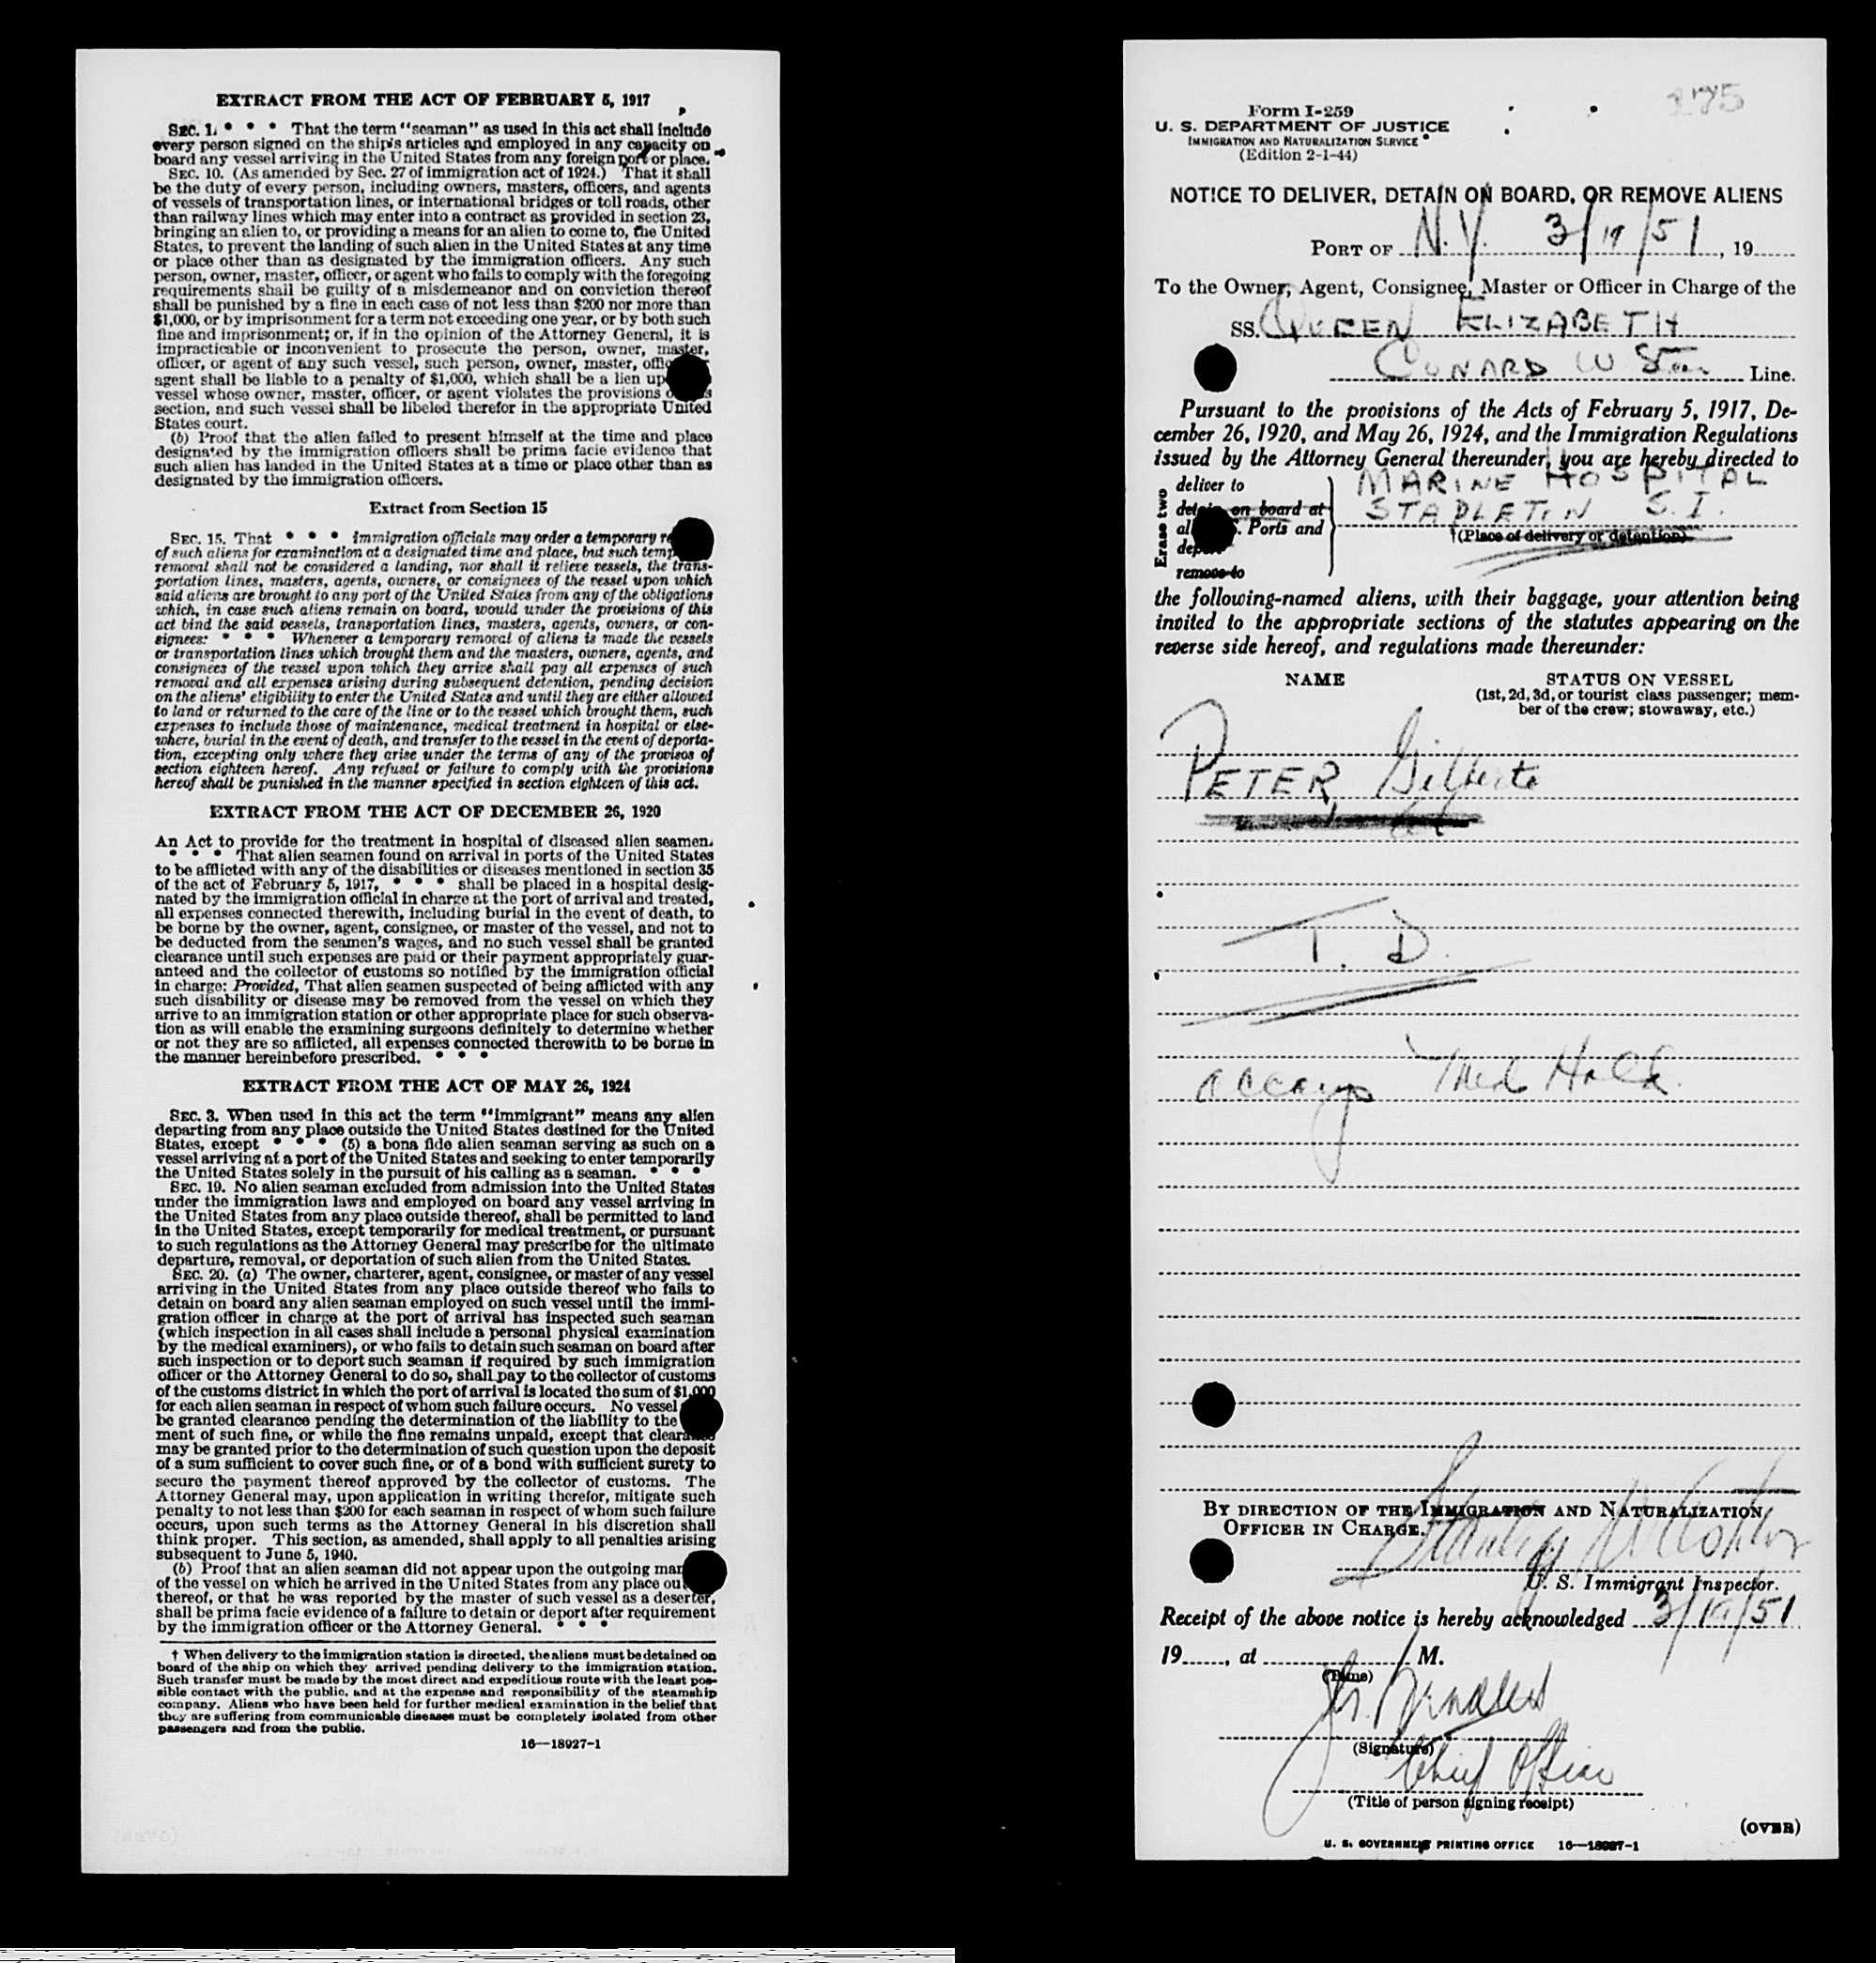 EXTRACT FROM THE ACT OF FEBRUARY 5, 1917
SEC. 1. * * * That the term "seaman" as used in this act shall include
every person signed on the ship's articles and employed in any capacity on
board any vessel arriving in the United States from any foreign port or place.
SEC. 10. (As amended by Sec. 27 of immigration act of 1924.) That it shall
be the duty of every person, including owners, masters, officers, and agents
of vessels of transportation lines, or international bridges or toll roads, other
than railway lines which may enter into a contract as provided in section 23,
bringing an alien to, or providing a means for an alien to come to, the United
States, to prevent the landing of such alien in the United States at any time
or place other than as designated by the immigration officers. Any such
person, owner, master, officer, or agent who fails to comply with the foregoing
requirements shall be guilty of a misdemeanor and on conviction thereof
shall be punished by a fine in each case of not less than $200 nor more than
$1,000, or by imprisonment for a term not exceeding one year, or by both such
fine and imprisonment; or, if in the opinion of the Attorney General, it is
impracticable or inconvenient to prosecute the person, owner, master,
officer, or agent of any such vessel, such person, owner, master, offic
agent shall be liable to a penalty of $1,000, which shall be a lien up
vessel whose owner, master, officer, or agent violates the provisions o
section, and such vessel shall be libeled therefor in the appropriate United
States court.
(b) Proof that the alien failed to present himself at the time and place
designated by the immigration officers shall be prima facie evidence that
such alien has landed in the United States at a time or place other than as
designated by the immigration officers.
Extract from Section 15
SEC. 15. That * * * immigration officials may order a temporary re
of such aliens for examination at a designated time and place, but such temp
removal shall not be considered a landing, nor shall it relieve vessels, the trans-
portation lines, masters, agents, owners, or consignees of the vessel upon which
said aliens are brought to any port of the United States from any of the obligations
which, in case such aliens remain on board, would under the provisions of this
act bind the said vessels, transportation lines, masters, agents, owners, or con-
signees: * * * Whenever a temporary removal of aliens is made the vessels
or transportation lines which brought them and the masters, owners, agents, and
consignees of the vessel upon which they arrive shall pay all expenses of such
removal and all expenses arising during subsequent detention, pending decision
on the aliens' eligibility to enter the United States and until they are either allowed
to land or returned to the care of the line or to the vessel which brought them, such
expenses to include those of maintenance, medical treatment in hospital or else-
where, burial in the event of death, and transfer to the vessel in the event of deporta-
tion, excepting only where they arise under the terms of any of the provisos of
section eighteen hereof. Any refusal or failure to comply with the provisions
hereof shall be punished in the manner specified in section eighteen of this act.
EXTRACT FROM THE ACT OF DECEMBER 26, 1920
An Act to provide for the treatment in hospital of diseased alien seamen.
* * * That alien seamen found on arrival in ports of the United States
to be afflicted with any of the disabilities or diseases mentioned in section 35
of the act of February 5, 1917, * * * shall be placed in a hospital desig-
nated by the immigration official in charge at the port of arrival and treated,
all expenses connected therewith, including burial in the event of death, to
be borne by the owner, agent, consignee, or master of the vessel, and not to
be deducted from the seamen's wages, and no such vessel shall be granted
clearance until such expenses are paid or their payment appropriately guar-
anteed and the collector of customs so notified by the immigration official
in charge: Provided, That alien seamen suspected of being afflicted with any
such disability or disease may be removed from the vessel on which they
arrive to an immigration station or other appropriate place for such observa-
tion as will enable the examining surgeons definitely to determine whether
or not they are so afflicted, all expenses connected therewith to be borne in
the manner hereinbefore prescribed. * * *
EXTRACT FROM THE ACT OF MAY 26, 1924
SEC. 3. When used in this act the term "immigrant" means any alien
departing from any place outside the United States destined for the United
States, except * * * (5) a bona fide alien seaman serving as such on a
vessel arriving at a port of the United States and seeking to enter temporarily
the United States solely in the pursuit of his calling as a seaman. * * *
SEC. 19. No alien seaman excluded from admission into the United States
under the immigration laws and employed on board any vessel arriving in
the United States from any place outside thereof, shall be permitted to land
in the United States, except temporarily for medical treatment, or pursuant
to such regulations as the Attorney General may prescribe for the ultimate
departure, removal, or deportation of such alien from the United States.
SEC. 20. (a) The owner, charterer, agent, consignee, or master of any vessel
arriving in the United States from any place outside thereof who fails to
detain on board any alien seaman employed on such vessel until the immi-
gration officer in charge at the port of arrival has inspected such seaman
(which inspection in all cases shall include a personal physical examination
by the medical examiners), or who fails to detain such seaman on board after
such inspection or to deport such seaman if required by such immigration
officer or the Attorney General to do so, shall pay to the collector of customs
of the customs district in which the port of arrival is located the sum of $1,000
for each alien seaman in respect of whom such failure occurs. No vessel
be granted clearance pending the determination of the liability to the
ment of such fine, or while the fine remains unpaid, except that cleara
may be granted prior to the determination of such question upon the deposit
of a sum sufficient to cover such fine, or of a bond with sufficient surety to
secure the payment thereof approved by the collector of customs. The
Attorney General may, upon application in writing therefor, mitigate such
penalty to not less than $200 for each seaman in respect of whom such failure
occurs, upon such terms as the Attorney General in his discretion shall
think proper. This section, as amended, shall apply to all penalties arising
subsequent to June 5, 1940.
(b) Proof that an alien seaman did not appear upon the outgoing man
of the vessel on which he arrived in the United States from any place ou
thereof, or that he was reported by the master of such vessel as a deserter,
shall be prima facie evidence of a failure to detain or deport after requirement
by the immigration officer or the Attorney General. * * *
† When delivery to the immigration station is directed, the aliens must be detained on
board of the ship on which they arrived pending delivery to the immigration station.
Such transfer must be made by the most direct and expeditious route with the least pos-
sible contact with the public, and at the expense and responsibility of the steamship
company. Aliens who have been held for further medical examination in the belief that
they are suffering from communicable diseases must be completely isolated from other
passengers and from the public.
16—18927-1
175
Form I-259
U. S. DEPARTMENT OF JUSTICE
IMMIGRATION AND NATURALIZATION SERVICE
(Edition 2-1-44)
NOTICE TO DELIVER, DETAIN ON BOARD, OR REMOVE ALIENS
PORT OF N.Y. 3/19/51, 19
To the Owner, Agent, Consignee, Master or Officer in Charge of the
SS. QUEEN ELIZABETH
CUNARD W Star Line.
Pursuant to the provisions of the Acts of February 5, 1917, De-
cember 26, 1920, and May 26, 1924, and the Immigration Regulations
issued by the Attorney General thereunder, you are hereby directed to
Erase two
deliver to
detain on board at
al S. Ports and
depor
remove to
MARINE HOSPITAL
STAPLETON S.I.
†(Place of delivery or detention)
the following-named aliens, with their baggage, your attention being
invited to the appropriate sections of the statutes appearing on the
reverse side hereof, and regulations made thereunder:
NAME
STATUS ON VESSEL
(1st, 2d, 3d, or tourist class passenger; mem-
ber of the crew; stowaway, etc.)
PETER, Gilberte
T. D.
accomp Med Hold.
BY DIRECTION OF THE IMMIGRATION AND NATURALIZATION
OFFICER IN CHARGE.
Stanley
U. S. Immigrant Inspector.
Receipt of the above notice is hereby acknowledged 3/19/51
19, at M.
(Time)
(Signature)
Chief Officer
(Title of person signing receipt)
(OVER)
U. S. GOVERNMENT PRINTING OFFICE 16—18927-1